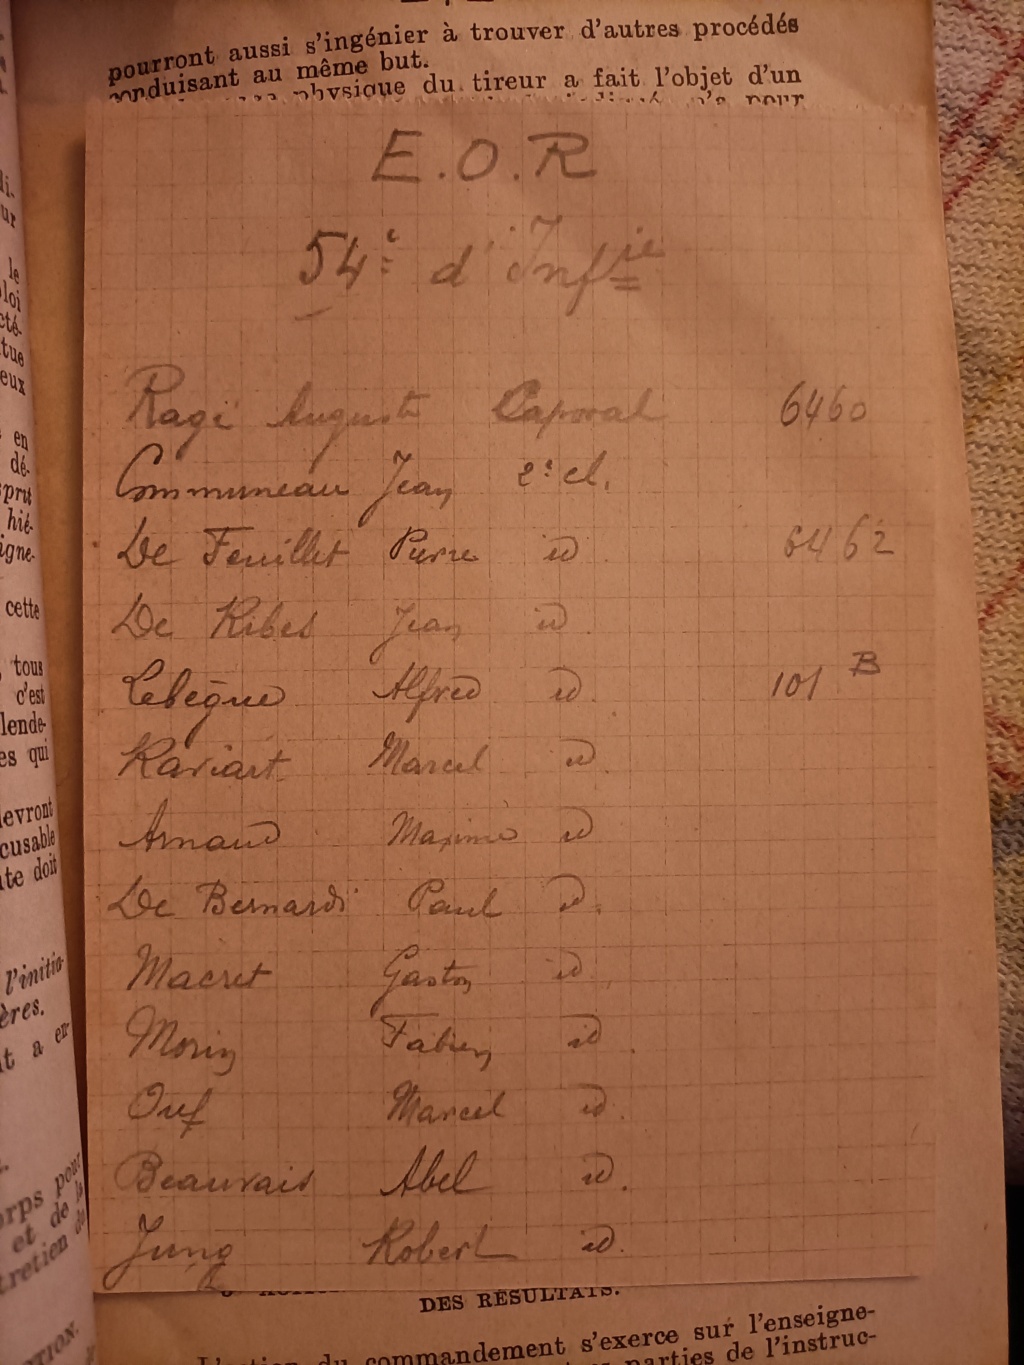 pourront aussi s'ingénier à trouver d'autres procédés
conduisant au même but.
physique du tireur a fait l'objet d'un
E.O.R
54e d'Infie
Ragi Auguste Caporal 6460
Communeau Jean 2e cl.
De Feuillet Pierre id 6462
De Ribes Jean id
Lebègue Alfred id 101 B
Raviart Marcel id
Arnaud Maxime id
De Bernardi Paul id.
Macret Gaston id
Morin Fabien id.
Ouf Marcel id.
Beauvais Abel id.
Jung Robert id.
DES RÉSULTATS.
du commandement s'exerce sur l'enseigne-
parties de l'instruc-
di-
ur
le
loi
cté-
tue
eux
en
dé-
sprit
hié-
igne-
cette
tous
c'est
lende-
es qui
devront
cusable
ite doit
l'initia-
ères.
it a en-
orps pour
et de la
tretien de
CTION.